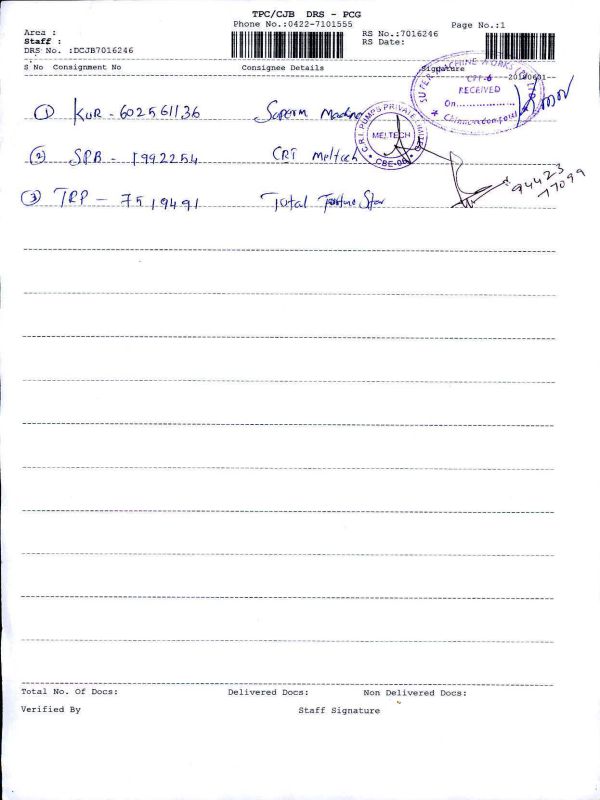 TPC/CJB DRS - PCG
Phone No.:0422-7101555
Page No.:1
Area :
Staff :
DRS No. :DCJB7016246
RS No.:7016246
RS Date:
S No Consignment No Consignee Details Signature
RECEIVED
On
① KUR - 602561136
C.R.I. PUMPS PRIVATE LIMITED
MELTECH
② SPB - 1992254 CRI Meltech
③ TRP - 7519491 Total
94423
77099
Total No. Of Docs: Delivered Docs: Non Delivered Docs:
Verified By Staff Signature